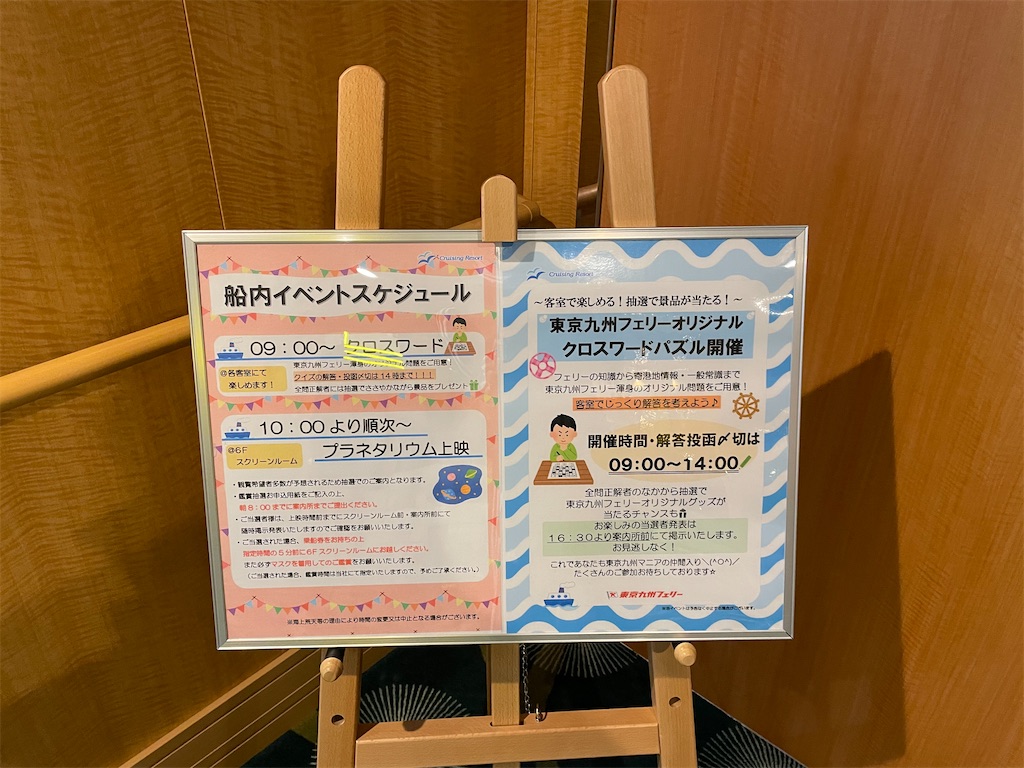 Cruising Resort
船内イベントスケジュール
09:00~ クロスワード
@各客室にて
楽しめます!
東京九州フェリー渾身のオリジナル問題をご用意!
クイズの解答・投函〆切は14時まで!!!
全問正解者には抽選でささやかながら景品をプレゼント
10:00より順次~
@6F
スクリーンルーム
プラネタリウム上映
・観覧希望者多数が予想されるため抽選でのご案内となります。
・鑑賞抽選お申込用紙をご記入の上、
朝8:00までに案内所までご提出ください。
・ご当選者様は、上映時間前までにスクリーンルーム前・案内所前にて
随時掲示発表いたしますのでご確認をお願いいたします。
・ご当選された場合、乗船券をお持ちの上
指定時間の5分前に6Fスクリーンルームにお越しください。
また必ずマスクを着用してのご鑑賞をお願いいたします。
(ご当選された場合、鑑賞時間は当社にて指定いたしますので、予めご了承ください。)
※海上荒天等の理由により時間の変更又は中止となる場合がございます。
Cruising Resort
~客室で楽しめる!抽選で景品が当たる!~
東京九州フェリーオリジナル
クロスワードパズル開催
フェリーの知識から寄港地情報・一般常識まで
東京九州フェリー渾身のオリジナル問題をご用意!
客室でじっくり解答を考えよう♪
開催時間・解答投函〆切は
09:00~14:00
全問正解者のなかから抽選で
東京九州フェリーオリジナルグッズが
当たるチャンスも
お楽しみの当選者発表は
16:30より案内所前にて掲示いたします。
お見逃しなく!
これであなたも東京九州マニアの仲間入り\(^O^)/
たくさんのご参加お待ちしております☆
東京九州フェリー